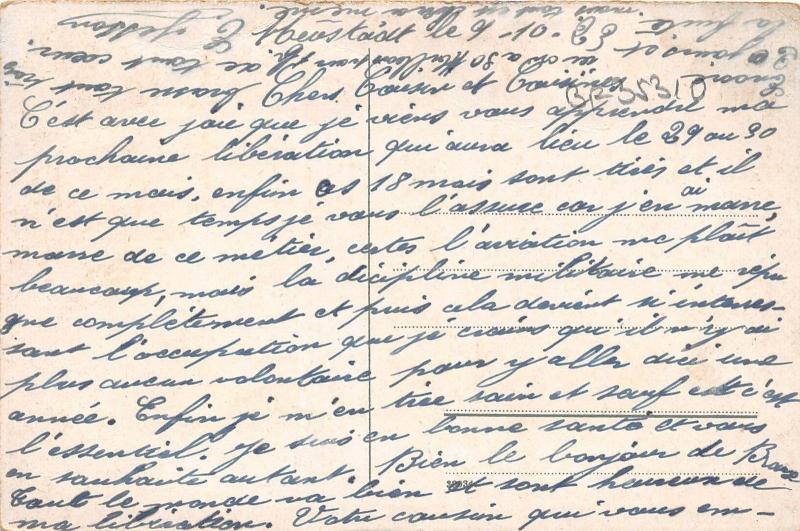 Neustadt le 9-10-23
Chers Cousin et Cousines
C'est avec joie que je viens vous apprendre ma
prochaine libération qui aura lieu le 29 ou 30
de ce mois, enfin les 18 mois sont tirés et il
n'est que temps je vous l'assure car j'en ai marre,
marre de ce métier, certes l'aviation me plaît
beaucoup, mais la dicipline militaire me répu
gne complétement et puis cela devient si intéres-
sant l'occupation que je crains qu'il n'y ai
plus aucun volontaire pour y aller dici une
année. Enfin je m'en tire sain et sauf et c'est
l'essentiel. Je suis en bonne santé et vous
en souhaite autant. Bien le bonjour de
tout le monde va bien et sont heureux de
ma libération. Votre cousin qui vous em-